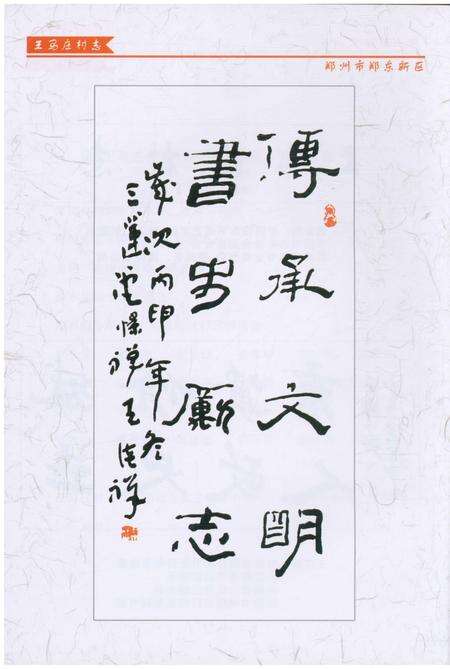 王马庄村志
郑州市郑东新区
傳承文明
書史勵志
歲次丙申年冬
三堂憬禅王德祥